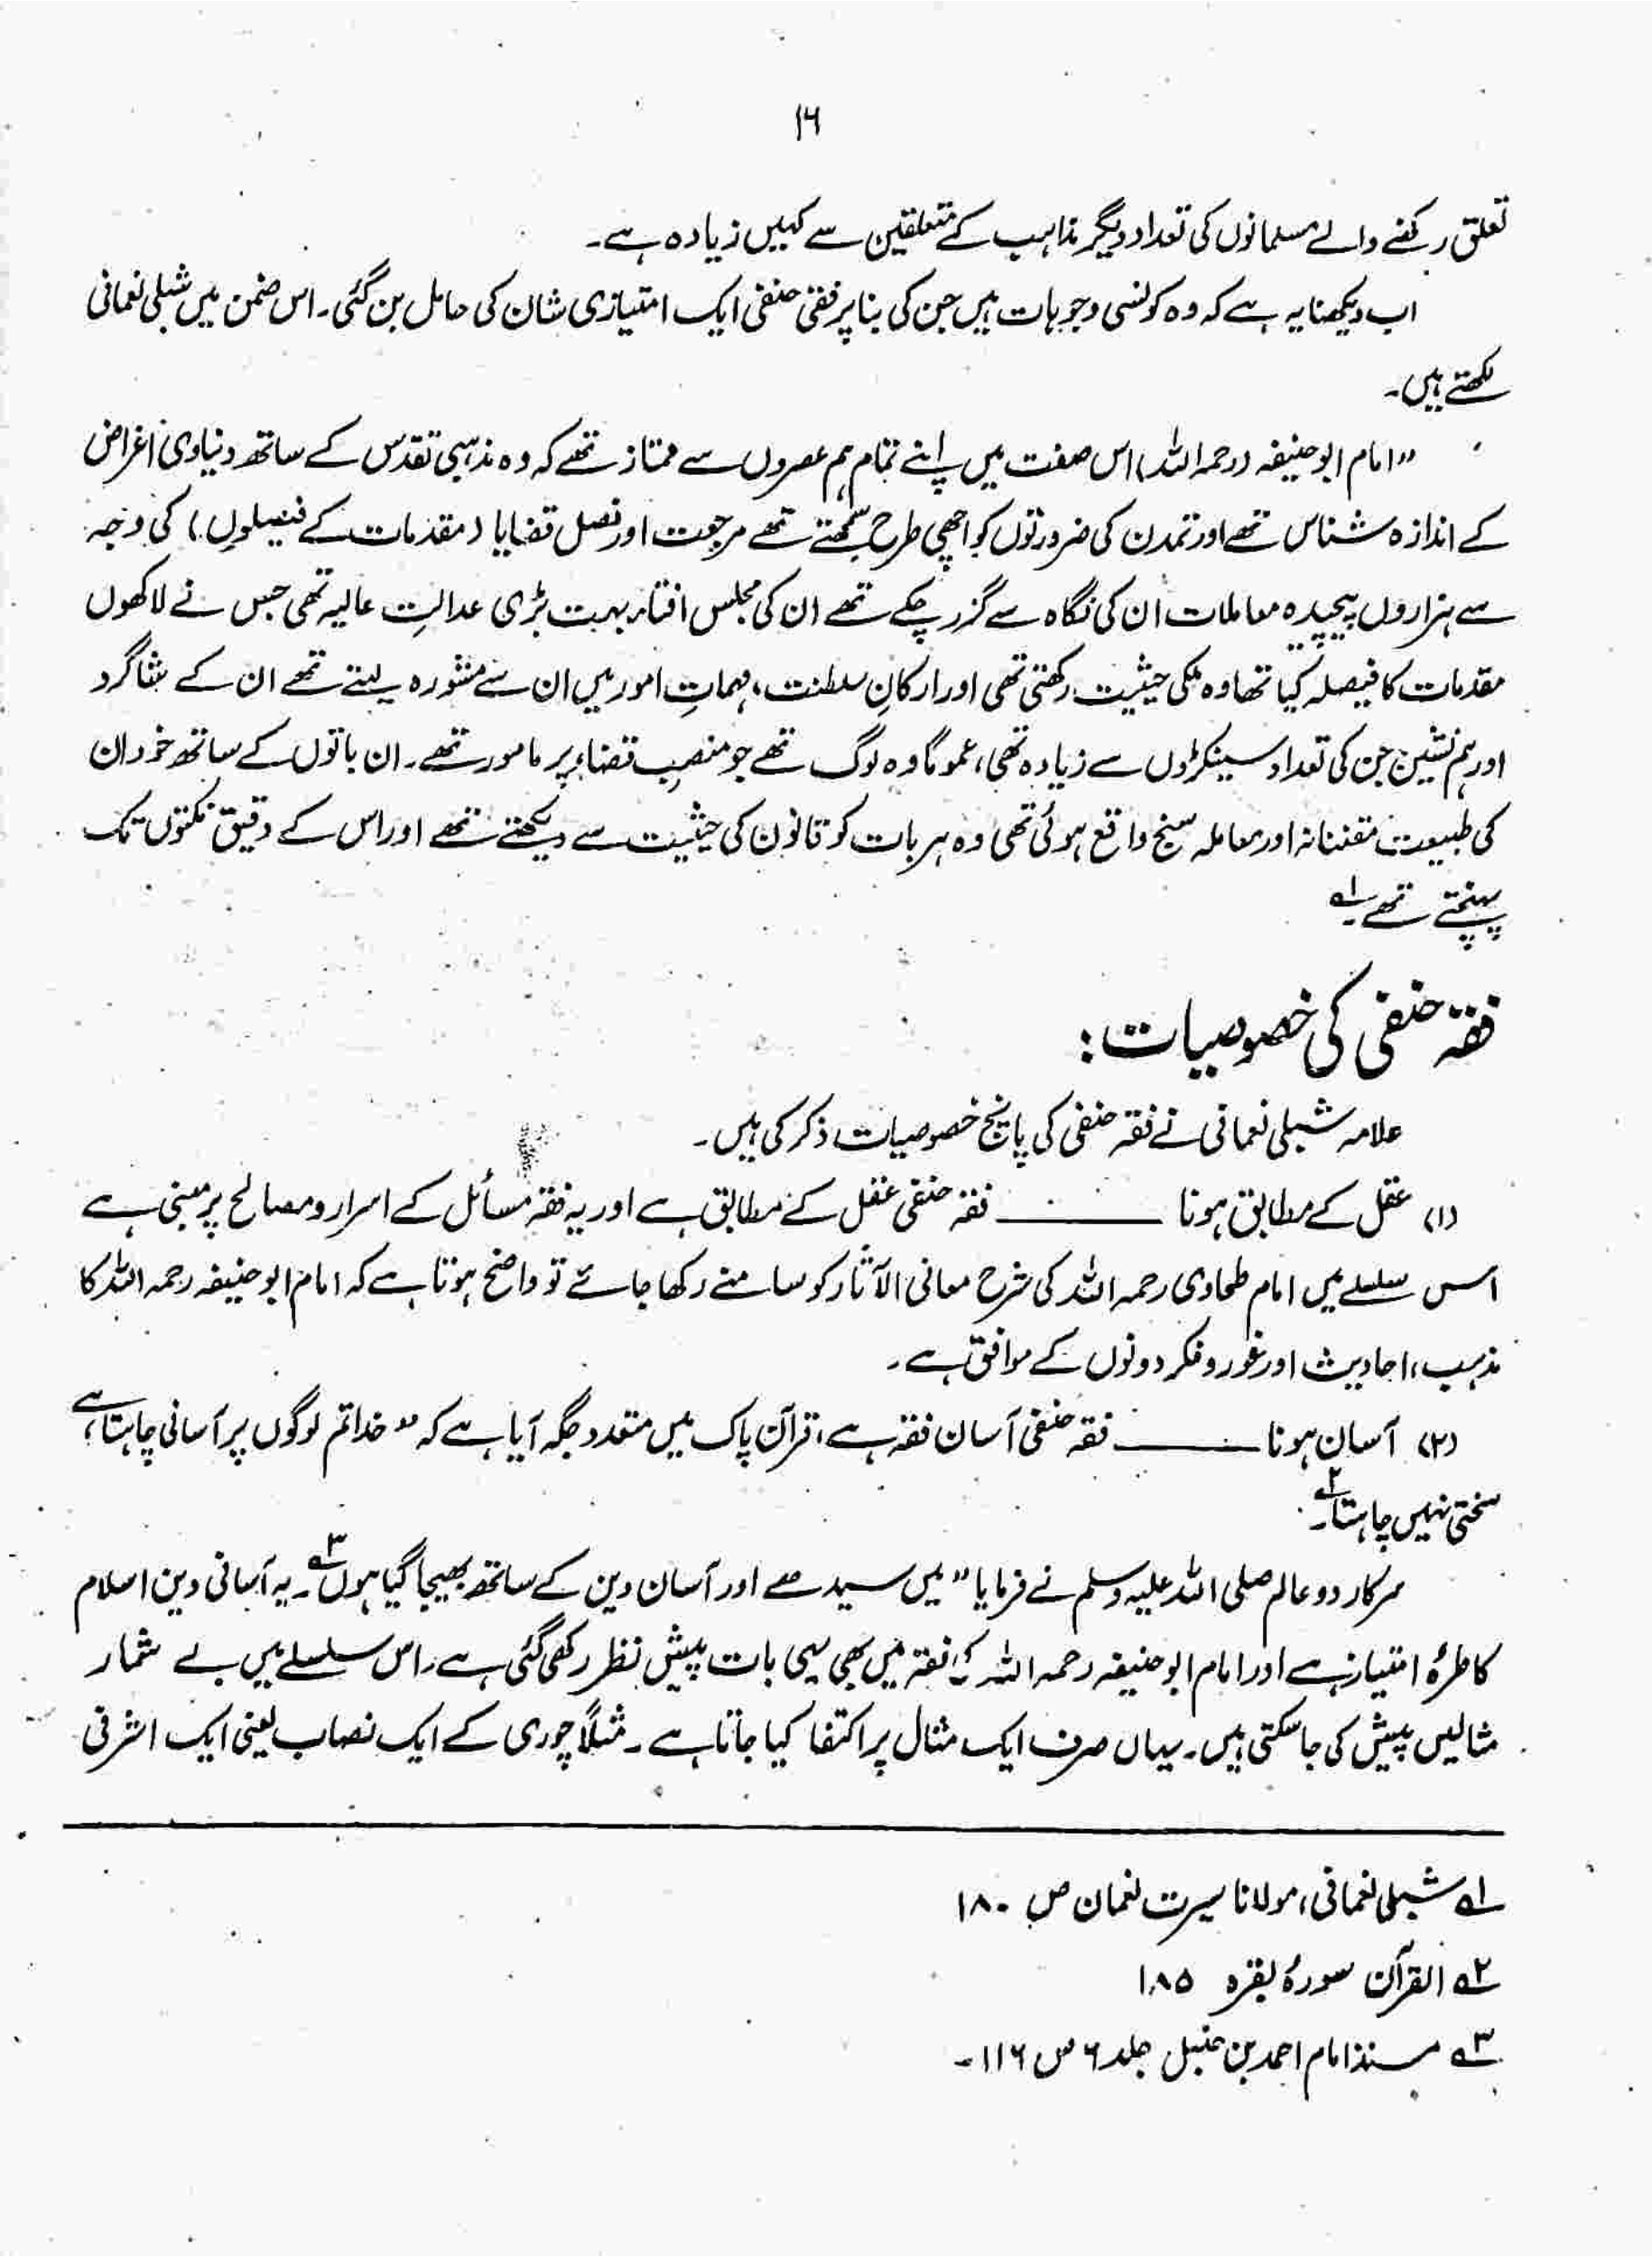 ۱۶
تعلق رکھنے والے مسلمانوں کی تعداد دیگر مذاہب کے متعلقین سے کہیں زیادہ ہے۔
اب دیکھنا یہ ہے کہ وہ کونسی وجوہات ہیں جن کی بنا پر فقہ حنفی ایک امتیازی شان کی حامل بن گئی۔ اس ضمن میں شبلی نعمانی
لکھتے ہیں۔
"امام ابو حنیفہ (رحمہ اللہ) اس صفت میں اپنے تمام ہم عصروں سے ممتاز تھے کہ وہ مذہبی تقدس کے ساتھ دنیاوی اغراض
کے اندازہ شناس تھے اور تمدن کی ضرورتوں کو اچھی طرح سمجھتے تھے مرجعیت اور فصل قضایا (مقدمات کے فیصلوں) کی وجہ
سے ہزاروں پیچیدہ معاملات ان کی نگاہ سے گزر چکے تھے ان کی مجلس افتاء بہت بڑی عدالتِ عالیہ تھی جس نے لاکھوں
مقدمات کا فیصلہ کیا تھا وہ ملکی حیثیت رکھتی تھی اور ارکانِ سلطنت، مہماتِ امور میں ان سے مشورہ لیتے تھے ان کے شاگرد
اور ہم نشین جن کی تعداد سینکڑوں سے زیادہ تھی، عموماً وہ لوگ تھے جو منصبِ قضاء پر مامور تھے۔ ان باتوں کے ساتھ خود ان
کی طبیعت مقننانہ اور معاملہ سنج واقع ہوئی تھی وہ ہر بات کو قانون کی حیثیت سے دیکھتے تھے اور اس کے دقیق نکتوں تک
پہنچتے تھے۔ ؎۱
فقہ حنفی کی خصوصیات:
علامہ شبلی نعمانی نے فقہ حنفی کی پانچ خصوصیات ذکر کی ہیں۔
(۱) عقل کے مطابق ہونا ــــــــ فقہ حنفی عقل کے مطابق ہے اور یہ فقہ مسائل کے اسرار و مصالح پر مبنی ہے
اس سلسلے میں امام طحاوی رحمہ اللہ کی شرح معانی الآثار کو سامنے رکھا جائے تو واضح ہوتا ہے کہ امام ابو حنیفہ رحمہ اللہ کا
مذہب، احادیث اور غور و فکر دونوں کے موافق ہے۔
(۲) آسان ہونا ــــــــ فقہ حنفی آسان فقہ ہے، قرآن پاک میں متعدد جگہ آیا ہے کہ "خدا تم لوگوں پر آسانی چاہتا ہے،
سختی نہیں چاہتا۔ ؎۲
سرکار دو عالم صلی اللہ علیہ وسلم نے فرمایا "میں سیدھے اور آسان دین کے ساتھ بھیجا گیا ہوں ؎۳۔ یہ آسانی دین اسلام
کا طرۂ امتیاز ہے اور امام ابو حنیفہ رحمہ اللہ کی فقہ میں بھی یہی بات پیش نظر رکھی گئی ہے۔ اس سلسلے میں بے شمار
مثالیں پیش کی جا سکتی ہیں۔ یہاں صرف ایک مثال پر اکتفا کیا جاتا ہے۔ مثلاً چوری کے ایک نصاب یعنی ایک اشرفی
؎۱ شبلی نعمانی، مولانا سیرت نعمان ص ۱۸۰
؎۲ القرآن سورۂ بقرہ ۱۸۵
؎۳ مسند امام احمد بن حنبل جلد ۶ س ۱۱۶۔